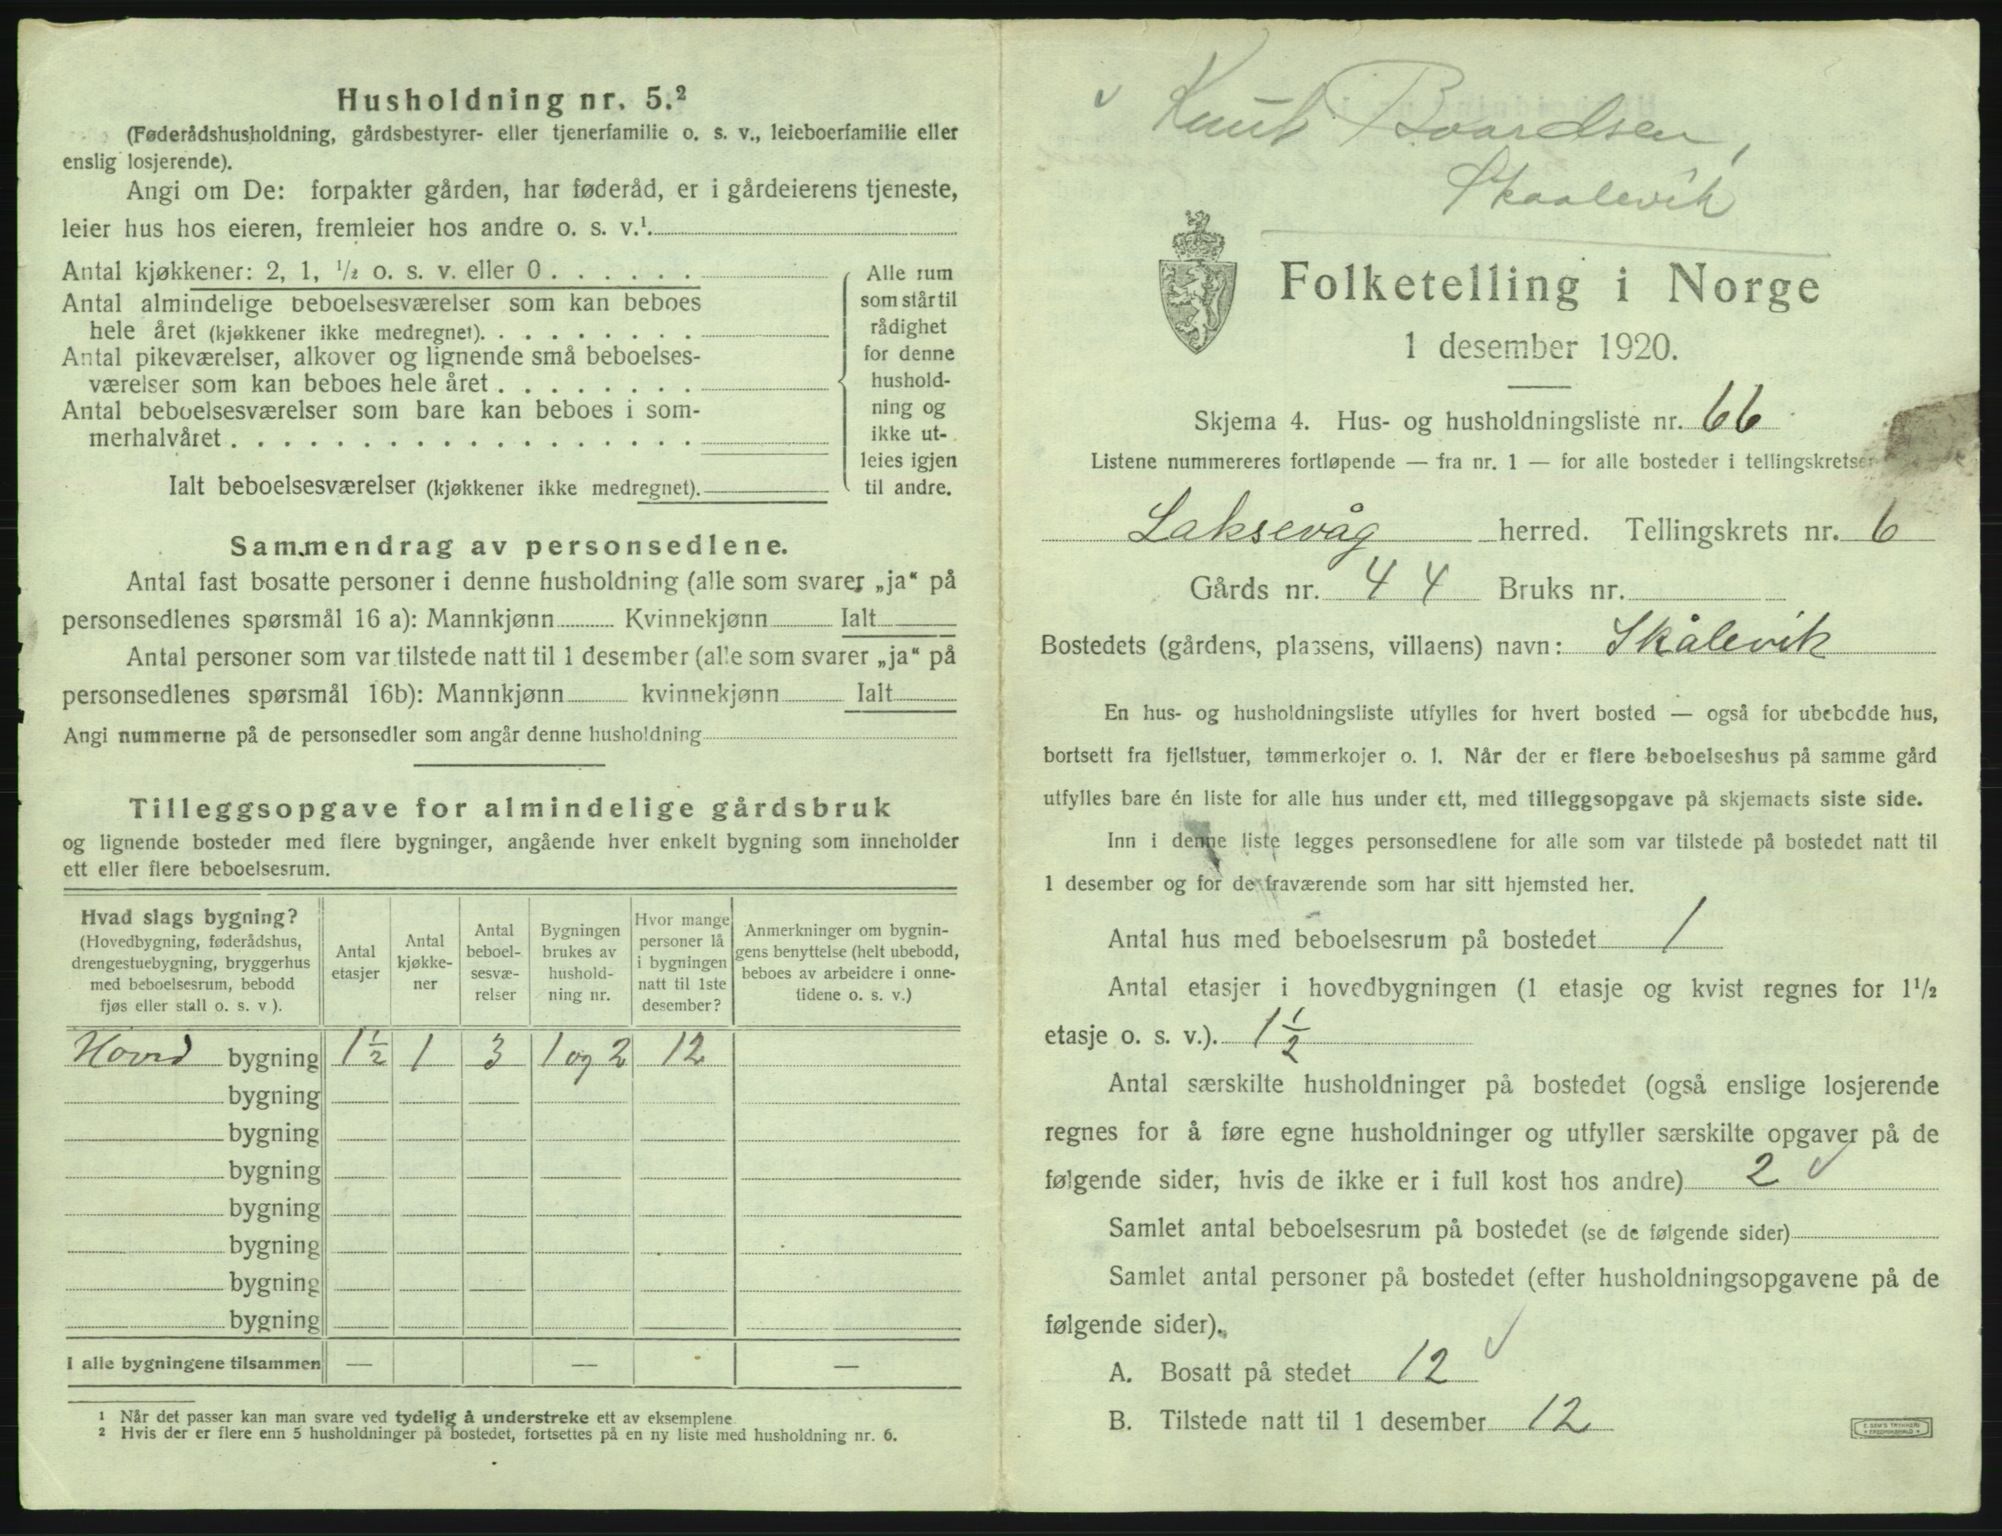 Husholdning nr. 5.²
(Føderådshusholdning, gårdsbestyrer- eller tjenerfamilie o. s. v., leieboerfamilie eller
enslig losjerende).
Angi om De: forpakter gården, har føderåd, er i gårdeierens tjeneste,
leier hus hos eieren, fremleier hos andre o. s. v.¹
Antal kjøkkener: 2, 1, ½ o. s. v. eller 0 . . . . . .
Antal almindelige beboelsesværelser som kan beboes
hele året (kjøkkener ikke medregnet). . . . . . . . .
Antal pikeværelser, alkover og lignende små beboelses-
værelser som kan beboes hele året . . . . . . . .
Antal beboelsesværelser som bare kan beboes i som-
merhalvåret . . . . . . . . . . . . . . . . . .
Ialt beboelsesværelser (kjøkkener ikke medregnet).
Alle rum
som står til
rådighet
for denne
hushold-
ning og
ikke ut-
leies igjen
til andre.
Sammendrag av personsedlene.
Antal fast bosatte personer i denne husholdning (alle som svarer „ja“ på
personsedlenes spørsmål 16 a): Mannkjønn Kvinnekjønn Ialt
Antal personer som var tilstede natt til 1 desember (alle som svarer „ja“ på
personsedlenes spørsmål 16b): Mannkjønn kvinnekjønn Ialt
Angi nummerne på de personsedler som angår denne husholdning
Tilleggsopgave for almindelige gårdsbruk
og lignende bosteder med flere bygninger, angående hver enkelt bygning som inneholder
ett eller flere beboelsesrum.
Hvad slags bygning?
(Hovedbygning, føderådshus,
drengestuebygning, bryggerhus
med beboelsesrum, bebodd
fjøs eller stall o. s. v ).
Antal
etasjer
Antal
kjøkke-
ner
Antal
beboel-
sesvæ-
relser
Bygningen
brukes av
hushold-
ning nr.
Hvor mange
personer lå
i bygningen
natt til 1ste
desember?
Anmerkninger om bygnin-
gens benyttelse (helt ubebodd,
beboes av arbeidere i onne-
tidene o. s. v.)
Hoved bygning 1½ 1 3 1 og 2 12
bygning
bygning
bygning
bygning
bygning
bygning
bygning
I alle bygningene tilsammen — — —
¹ Når det passer kan man svare ved tydelig å understreke ett av eksemplene
² Hvis der er flere enn 5 husholdninger på bostedet, fortsettes på en ny liste med husholdning nr. 6.
Knut Baardsen,
Skaalevik
Folketelling i Norge
1 desember 1920.
Skjema 4. Hus- og husholdningsliste nr. 66
Listene nummereres fortløpende — fra nr. 1 — for alle bosteder i tellingskretsen
Laksevåg herred. Tellingskrets nr. 6
Gårds nr. 44 Bruks nr.
Bostedets (gårdens, plassens, villaens) navn: Skålevik
En hus- og husholdningsliste utfylles for hvert bosted — også for ubebodde hus,
bortsett fra fjellstuer, tømmerkojer o. l. Når der er flere beboelseshus på samme gård
utfylles bare én liste for alle hus under ett, med tilleggsopgave på skjemaets siste side.
Inn i denne liste legges personsedlene for alle som var tilstede på bostedet natt til
1 desember og for de fraværende som har sitt hjemsted her.
Antal hus med beboelsesrum på bostedet 1
Antal etasjer i hovedbygningen (1 etasje og kvist regnes for 1½
etasje o. s. v.). 1½
Antal særskilte husholdninger på bostedet (også enslige losjerende
regnes for å føre egne husholdninger og utfyller særskilte opgaver på de
følgende sider, hvis de ikke er i full kost hos andre) 2
Samlet antal beboelsesrum på bostedet (se de følgende sider)
Samlet antal personer på bostedet (efter husholdningsopgavene på de
følgende sider).
A. Bosatt på stedet 12
B. Tilstede natt til 1 desember 12